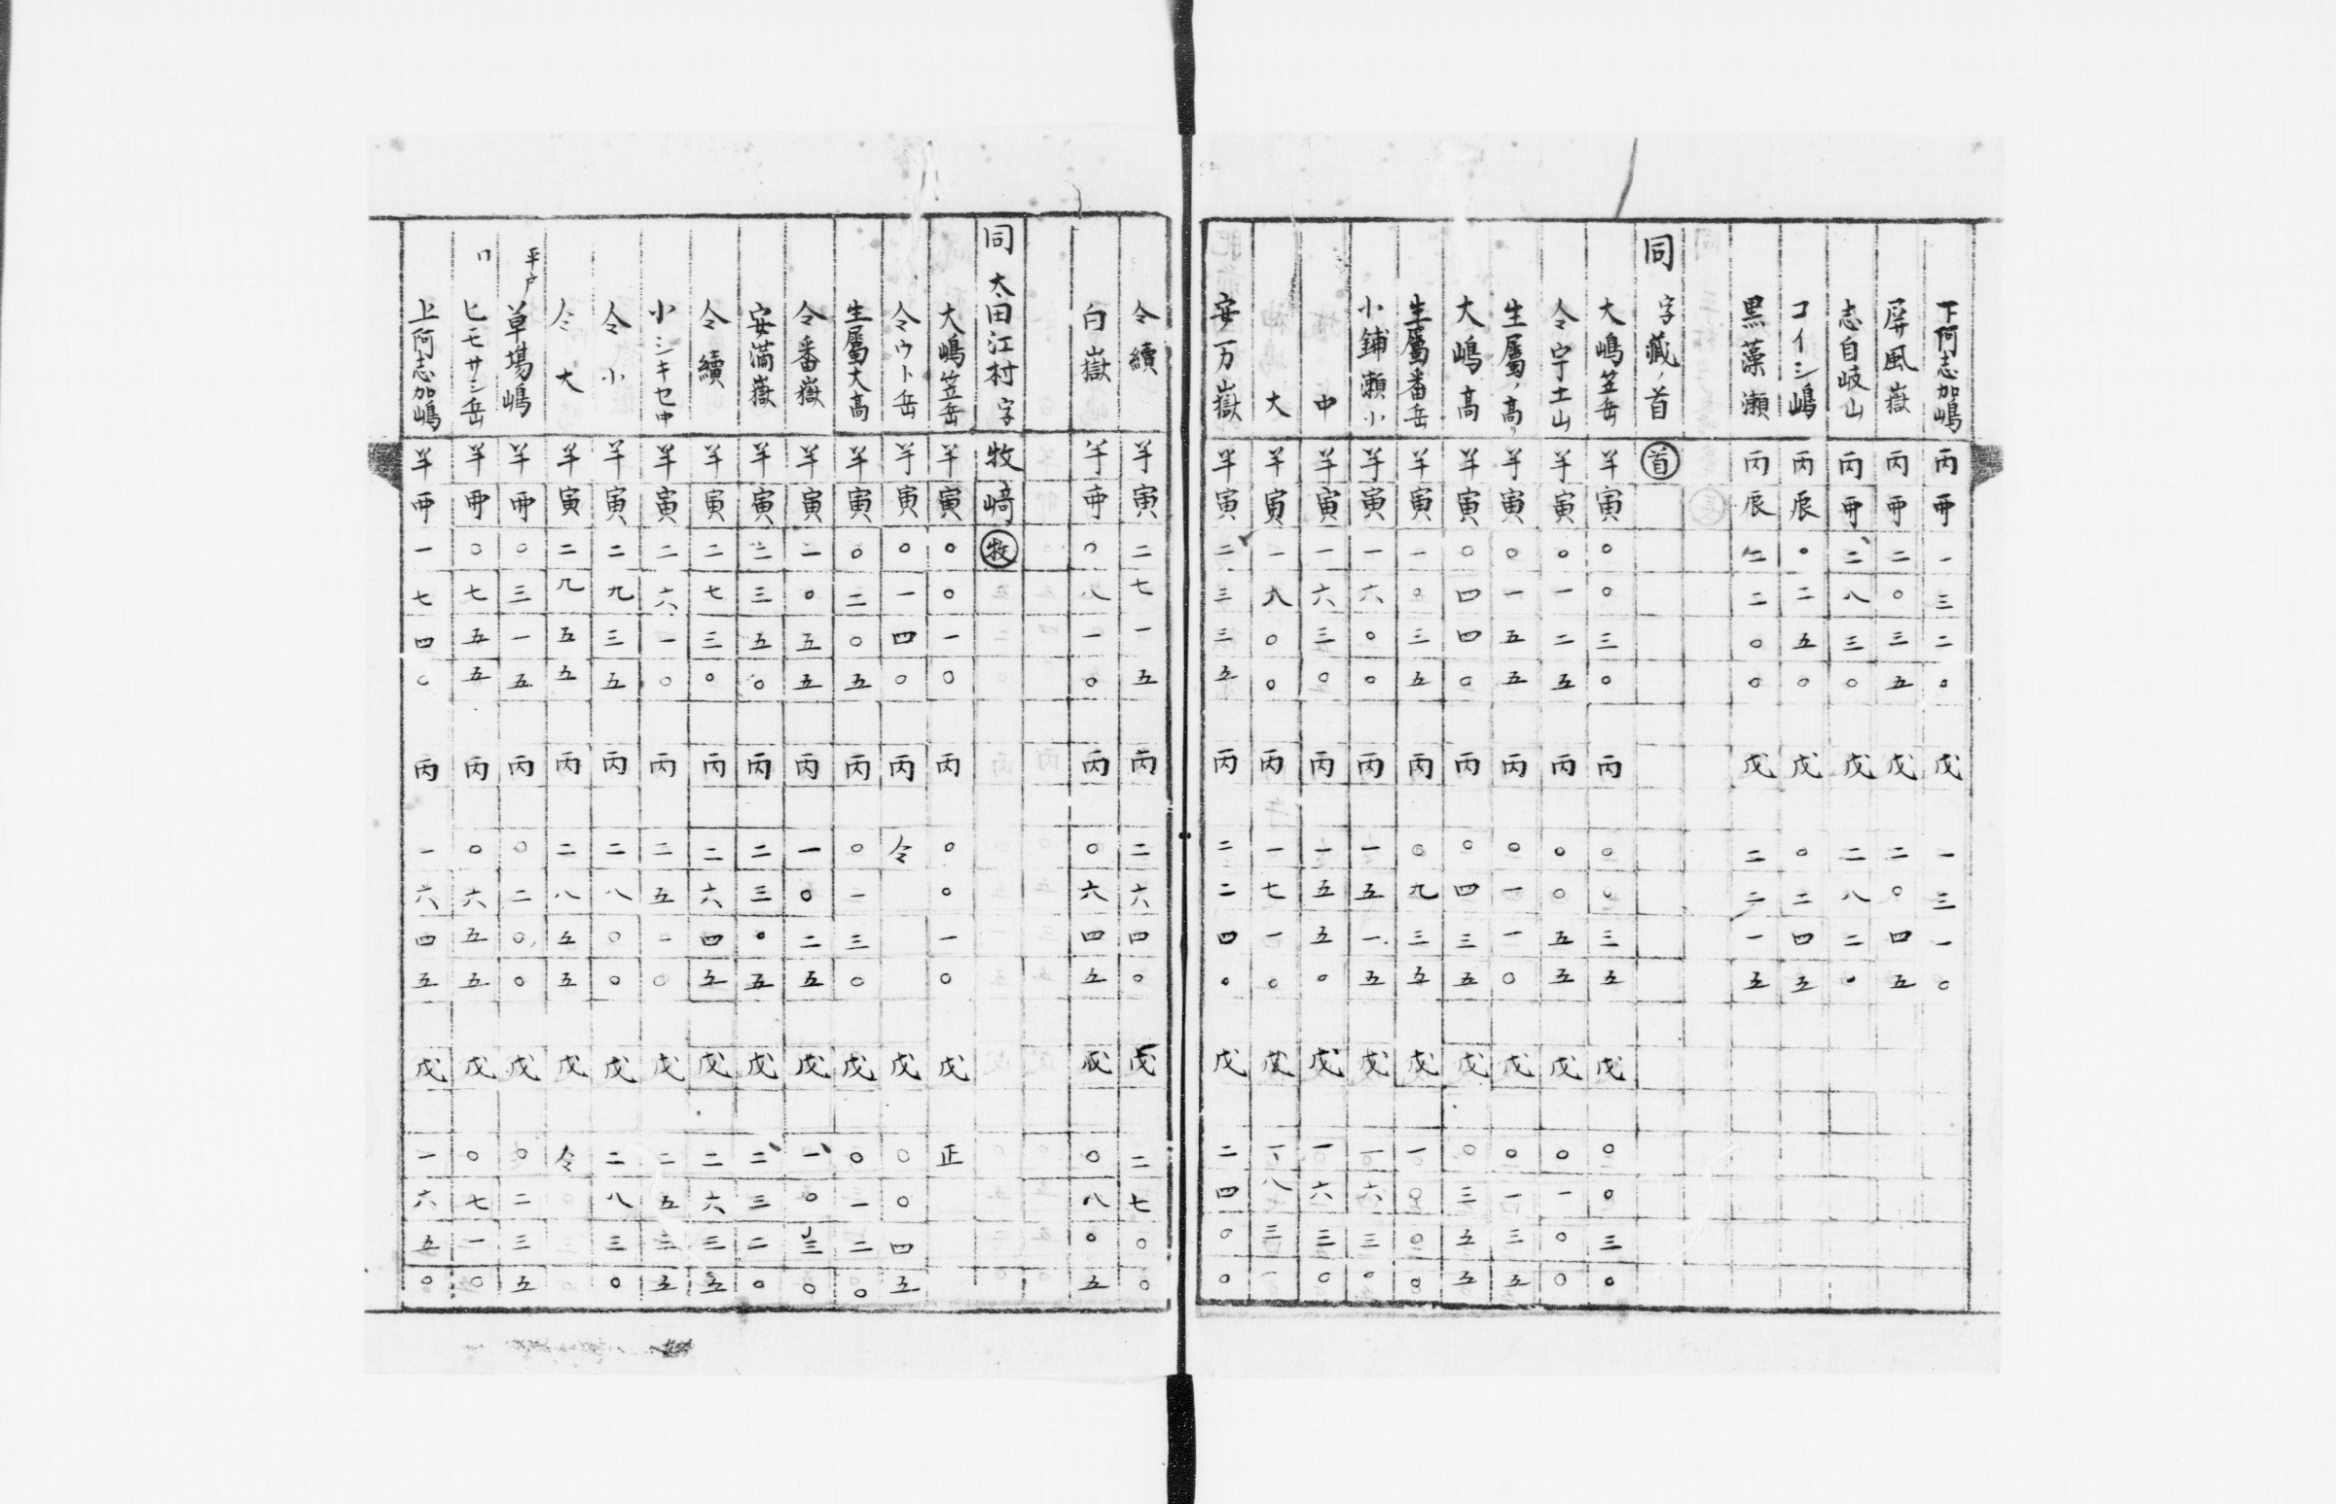 下阿志加嶋 丙 𠀃 一三二〇 戊 一三一〇
屏風嶽 丙 二〇三五 戊 二〇四五
志自岐山 丙 二八三〇 戊 二八二〇
コイシ嶋 丙辰 〇二五〇 戊 〇二四五
黒藻瀬 丙辰 二二〇〇 戊 二二一五
同 字蔵ノ首 首
大嶋笠岳 半寅 〇〇三〇 丙 〇〇三五 戊 〇〇三〇
仝宇土山 半寅 〇一二五 丙 〇〇五五 戊 〇一〇〇
生属ノ高 半寅 〇一五五 丙 〇一一〇 戊 〇一三五
大嶋高 半寅 〇四四〇 丙 〇四三五 戊 〇三五五
生属番岳 半寅 一〇三五 丙 〇九三五 戊 一〇〇〇
小鋪瀬小 半寅 一六〇〇 丙 一五一五 戊 一六三〇
中 半寅 一六三〇 丙 一五五〇 戊 一六三〇
大 半寅 一八〇〇 丙 一七一〇 戊 一八三一
安万嶽 半寅 二三三五 丙 二二四〇 戊 二四〇〇
仝續 半寅 二七一五 丙 二六四〇 戊 二七〇〇
白嶽 半 〇八一〇 丙 〇六四五 戊 〇八〇五
同 太田江村字牧﨑 牧
大嶋笠岳 半寅 〇〇一〇 丙 〇〇一〇 戊 正
仝ウト岳 半寅 〇一四〇 丙 仝 戊 〇〇四五
生属大高 半寅 〇二〇五 丙 〇一三〇 戊 〇一二〇
仝番嶽 半寅 一〇五五 丙 一〇二五 戊 一〇三〇
安満嶽 半寅 二三五〇 丙 二三〇五 戊 二三二〇
仝續 半寅 二七三〇 丙 二六四五 戊 二六三五
小シキセ中 半寅 二六一〇 丙 二五一〇 戊 二五三五
仝小 半寅 二九三五 丙 二八〇〇 戊 二八三〇
仝大 半寅 二九五五 丙 二八五五 戊 仝
平戸草場嶋 半 〇三一五 丙 〇二〇〇 戊 〇二三五
〃 ヒモサシ岳 半 〇七五五 丙 〇六五五 戊 〇七一〇
上阿志加嶋 半 一七四〇 丙 一六四五 戊 一六五〇